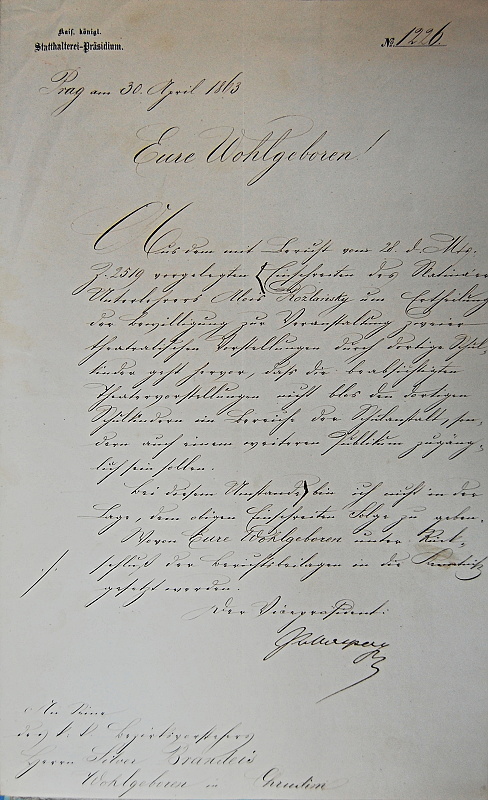 Kais. königl.
Statthalterei-Präsidium.
№ 1226.
Prag am 30. April 1863
Eure Wohlgeboren!
Aus dem mit Bericht vom 28. d. Mts.
Z. 2519 vorgelegten Einschreiten des
Unterlehrers Alois um Ertheilung
der Bewilligung zur Veranstaltung zweier
theatralischen Vorstellungen durch dortige Schul-
kinder geht hervor, daß die beabsichtigten
Theatervorstellungen nicht blos den dortigen
Schulkindern im Bereiche der Schulanstalt, son-
dern auch einem weiteren Publikum zugäng-
lich sein sollen.
Bei diesem Umstande bin ich nicht in der
Lage, dem obigen Einschreiten Folge zu geben.
Wovon Eure Wohlgeboren unter Rück-
schluß der Berichtsbeilagen in die Kenntniß
gesetzt werden.
Der Vicepräsident:
An Seine
des k. k. Bezirksvorstehers
Herrn Brandeis
Wohlgeboren in Chrudim